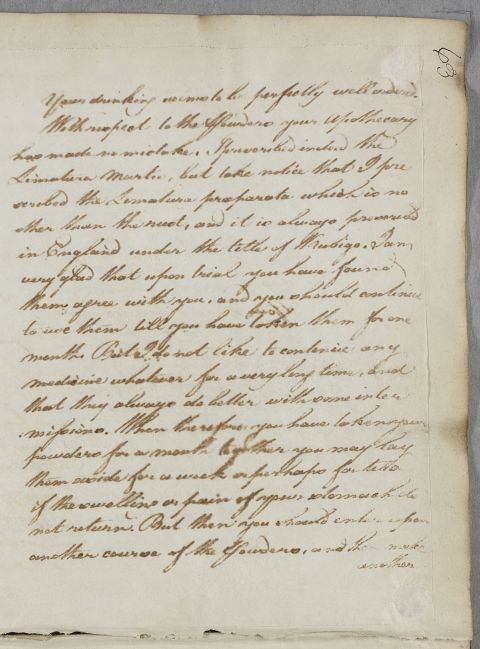 63
Your drinking seems to be perfectly well ordered.
With respect to the Powders your Apothecary
has made no mistake. I prescribed indeed the
Limatura Martis, but take notice that I pre
scribed the Limatura praparata which is no
other than the rust, and it is always prepared
in England under the title of Rubigo. I am
very glad that upon trial you have found
them agree with you, and you should continue
to use them till you have taken them for one
month. But I do not like to continue any
medicine whatever for a very long time, and
that they always do better with some inter
missions. When therefore you have taken your
powders for a month together you may lay
them aside for a week or perhaps for two
if the swelling or pain of your stomach do
not return. But then you should enter upon
another course of the Powders, and then make
another